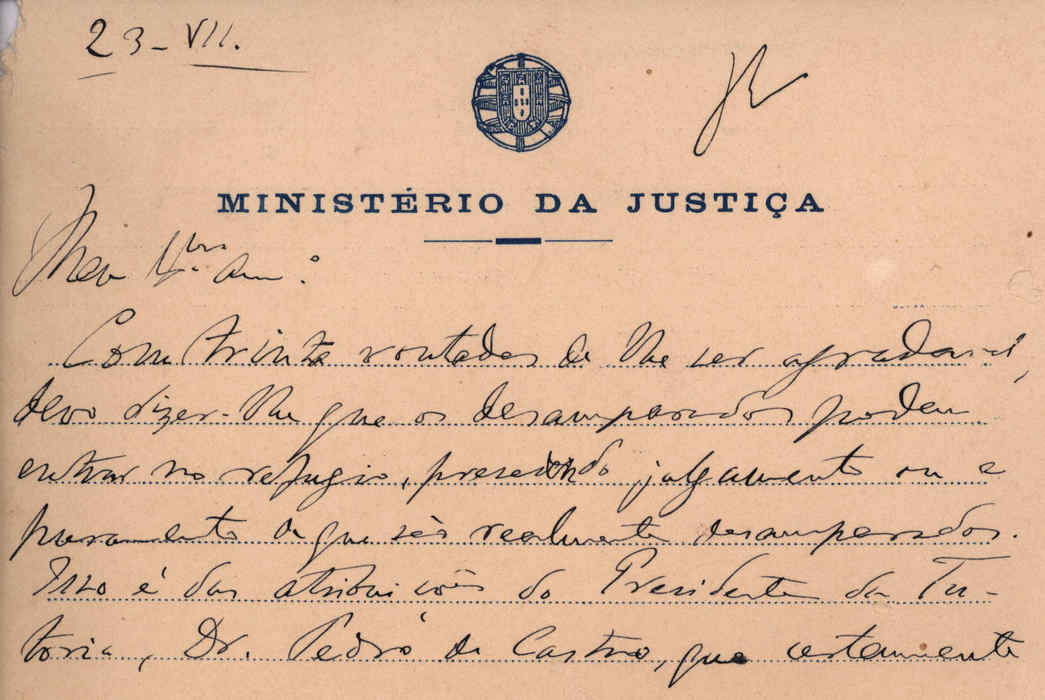 23-VII.
MINISTÉRIO DA JUSTIÇA
Meu
Com trinta vontades de lhe ser agradavel,
devo dizer-lhe que os desamparados podem
entrar no refugio, precedendo julgamento ou a
puramento de que são realmente desamparados.
Isso é das atribuições do Presidente da Tu-
toria, Dr. Pedro de Castro, que certamente